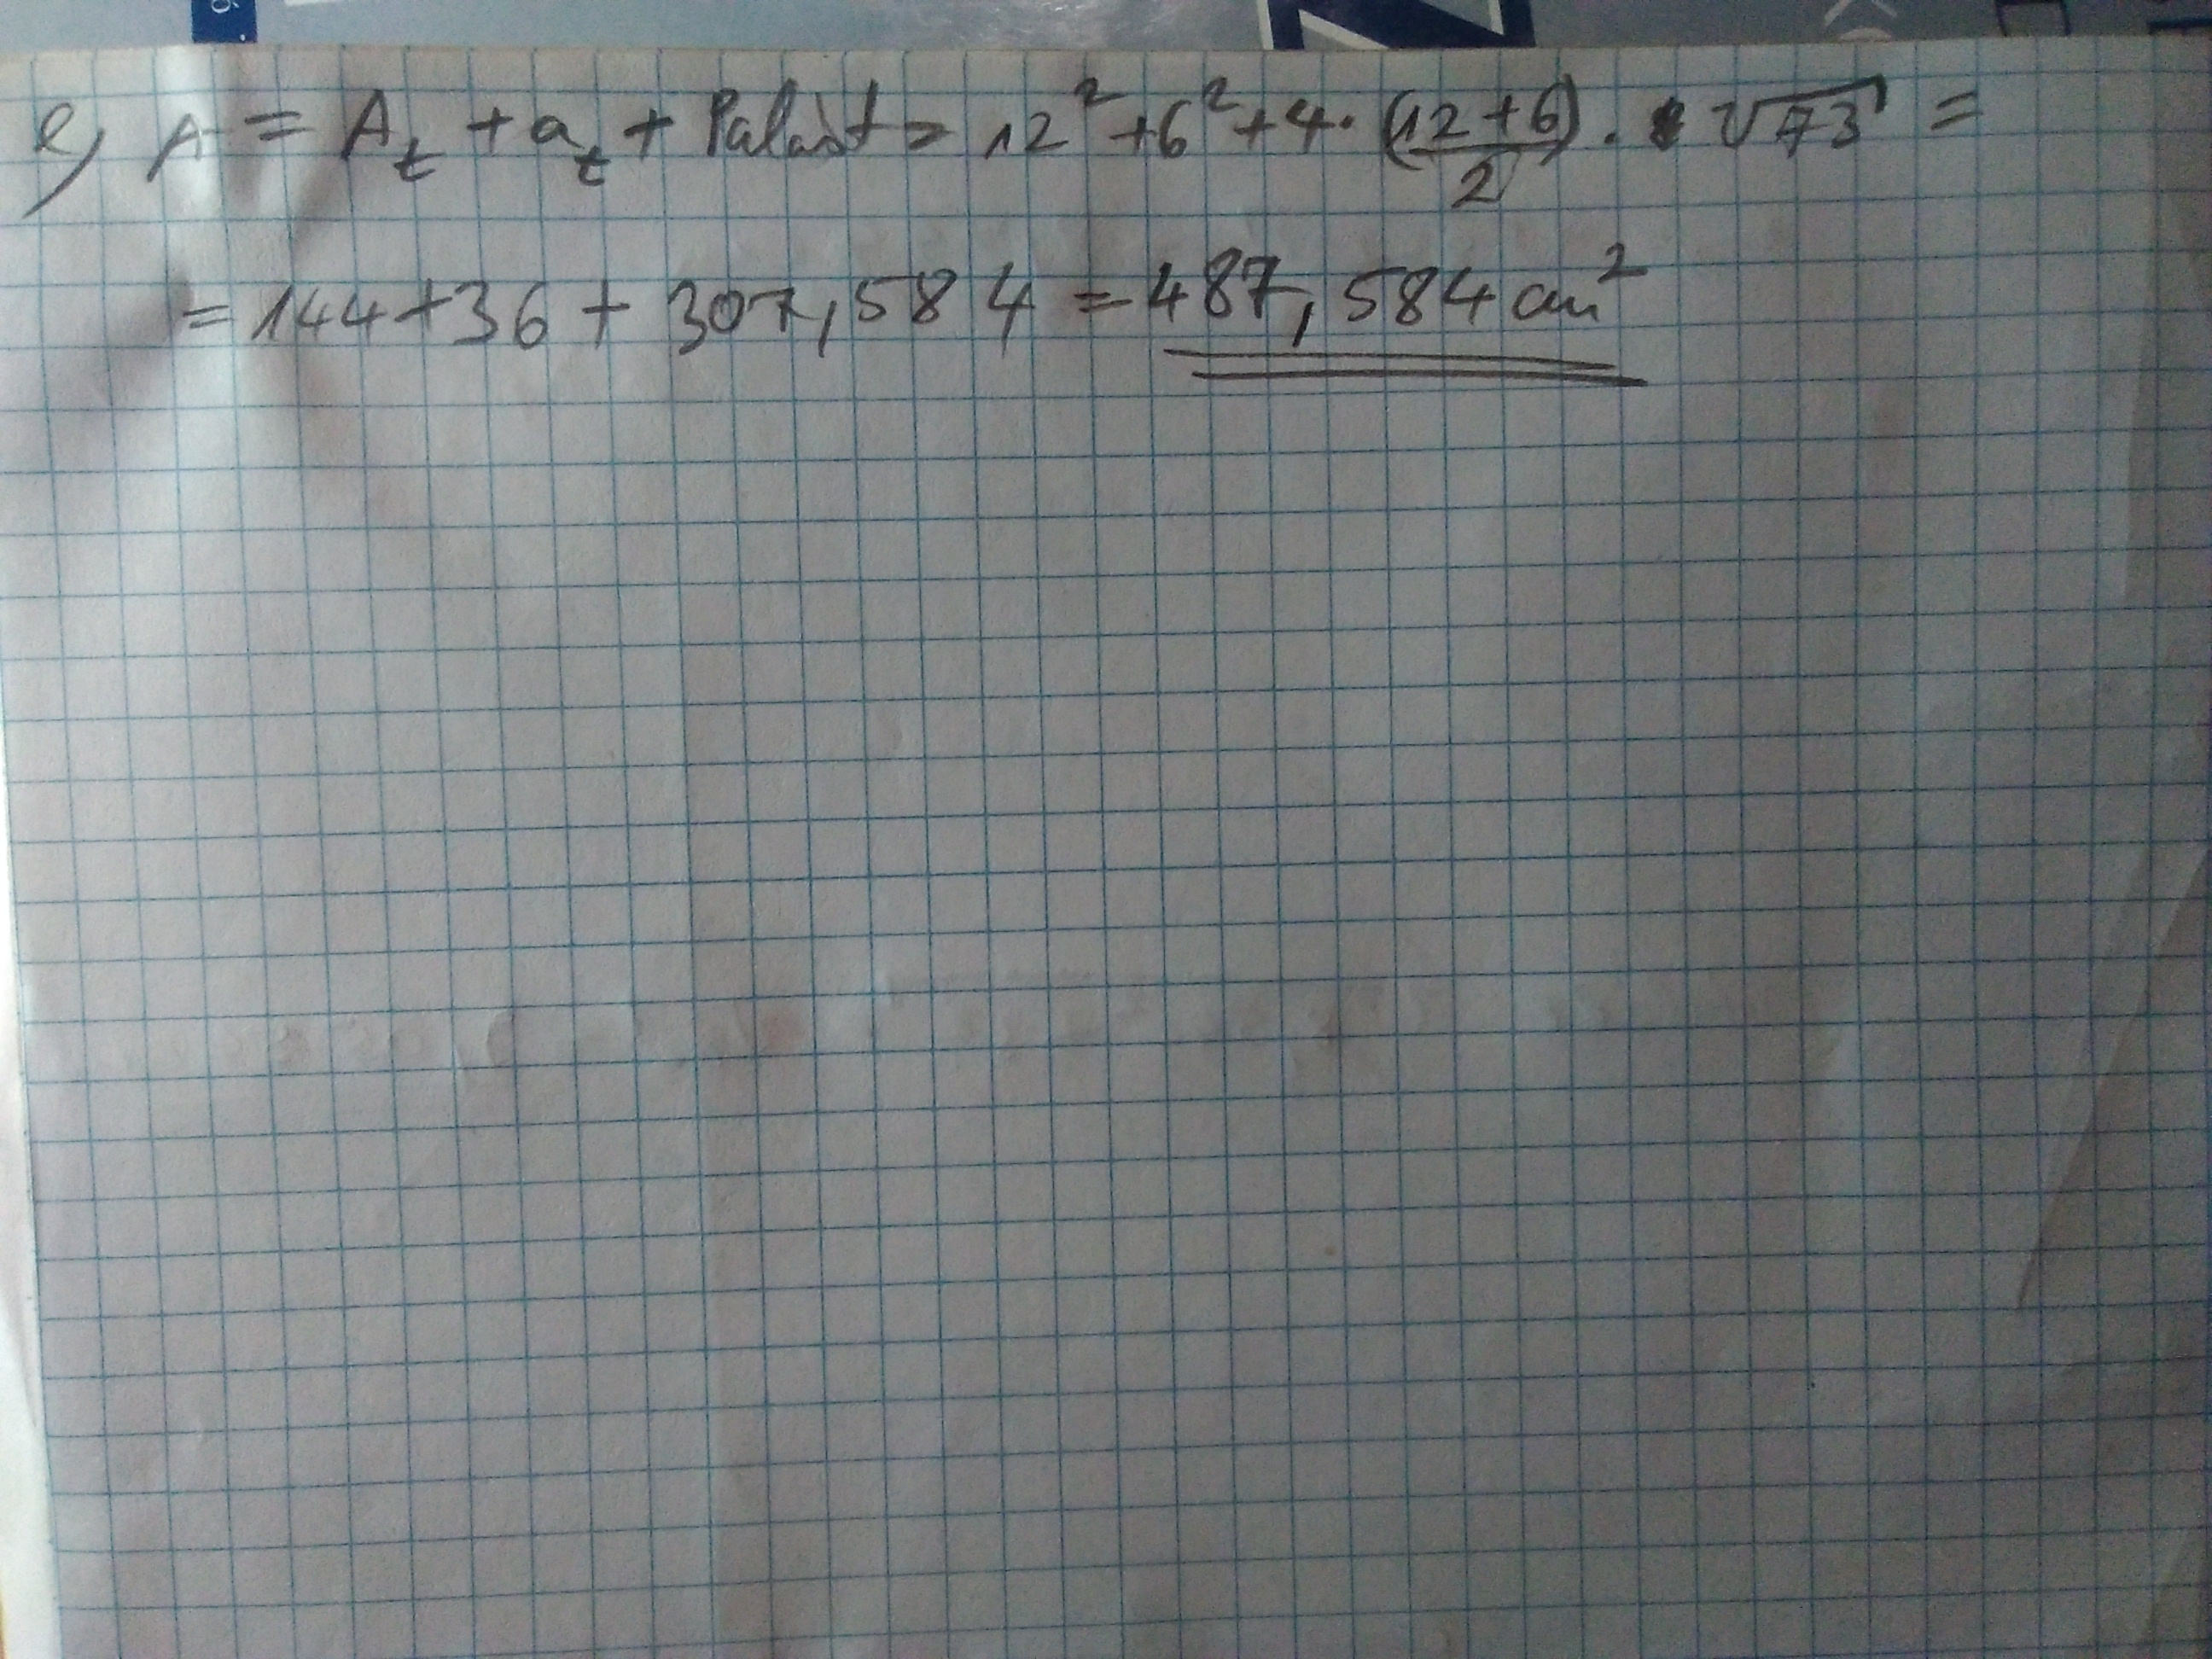 e) A = A_t + a_t + Palást = 12² + 6² + 4 · (12 + 6)/2 · √73 =
= 144 + 36 + 307,584 = 487,584 cm²